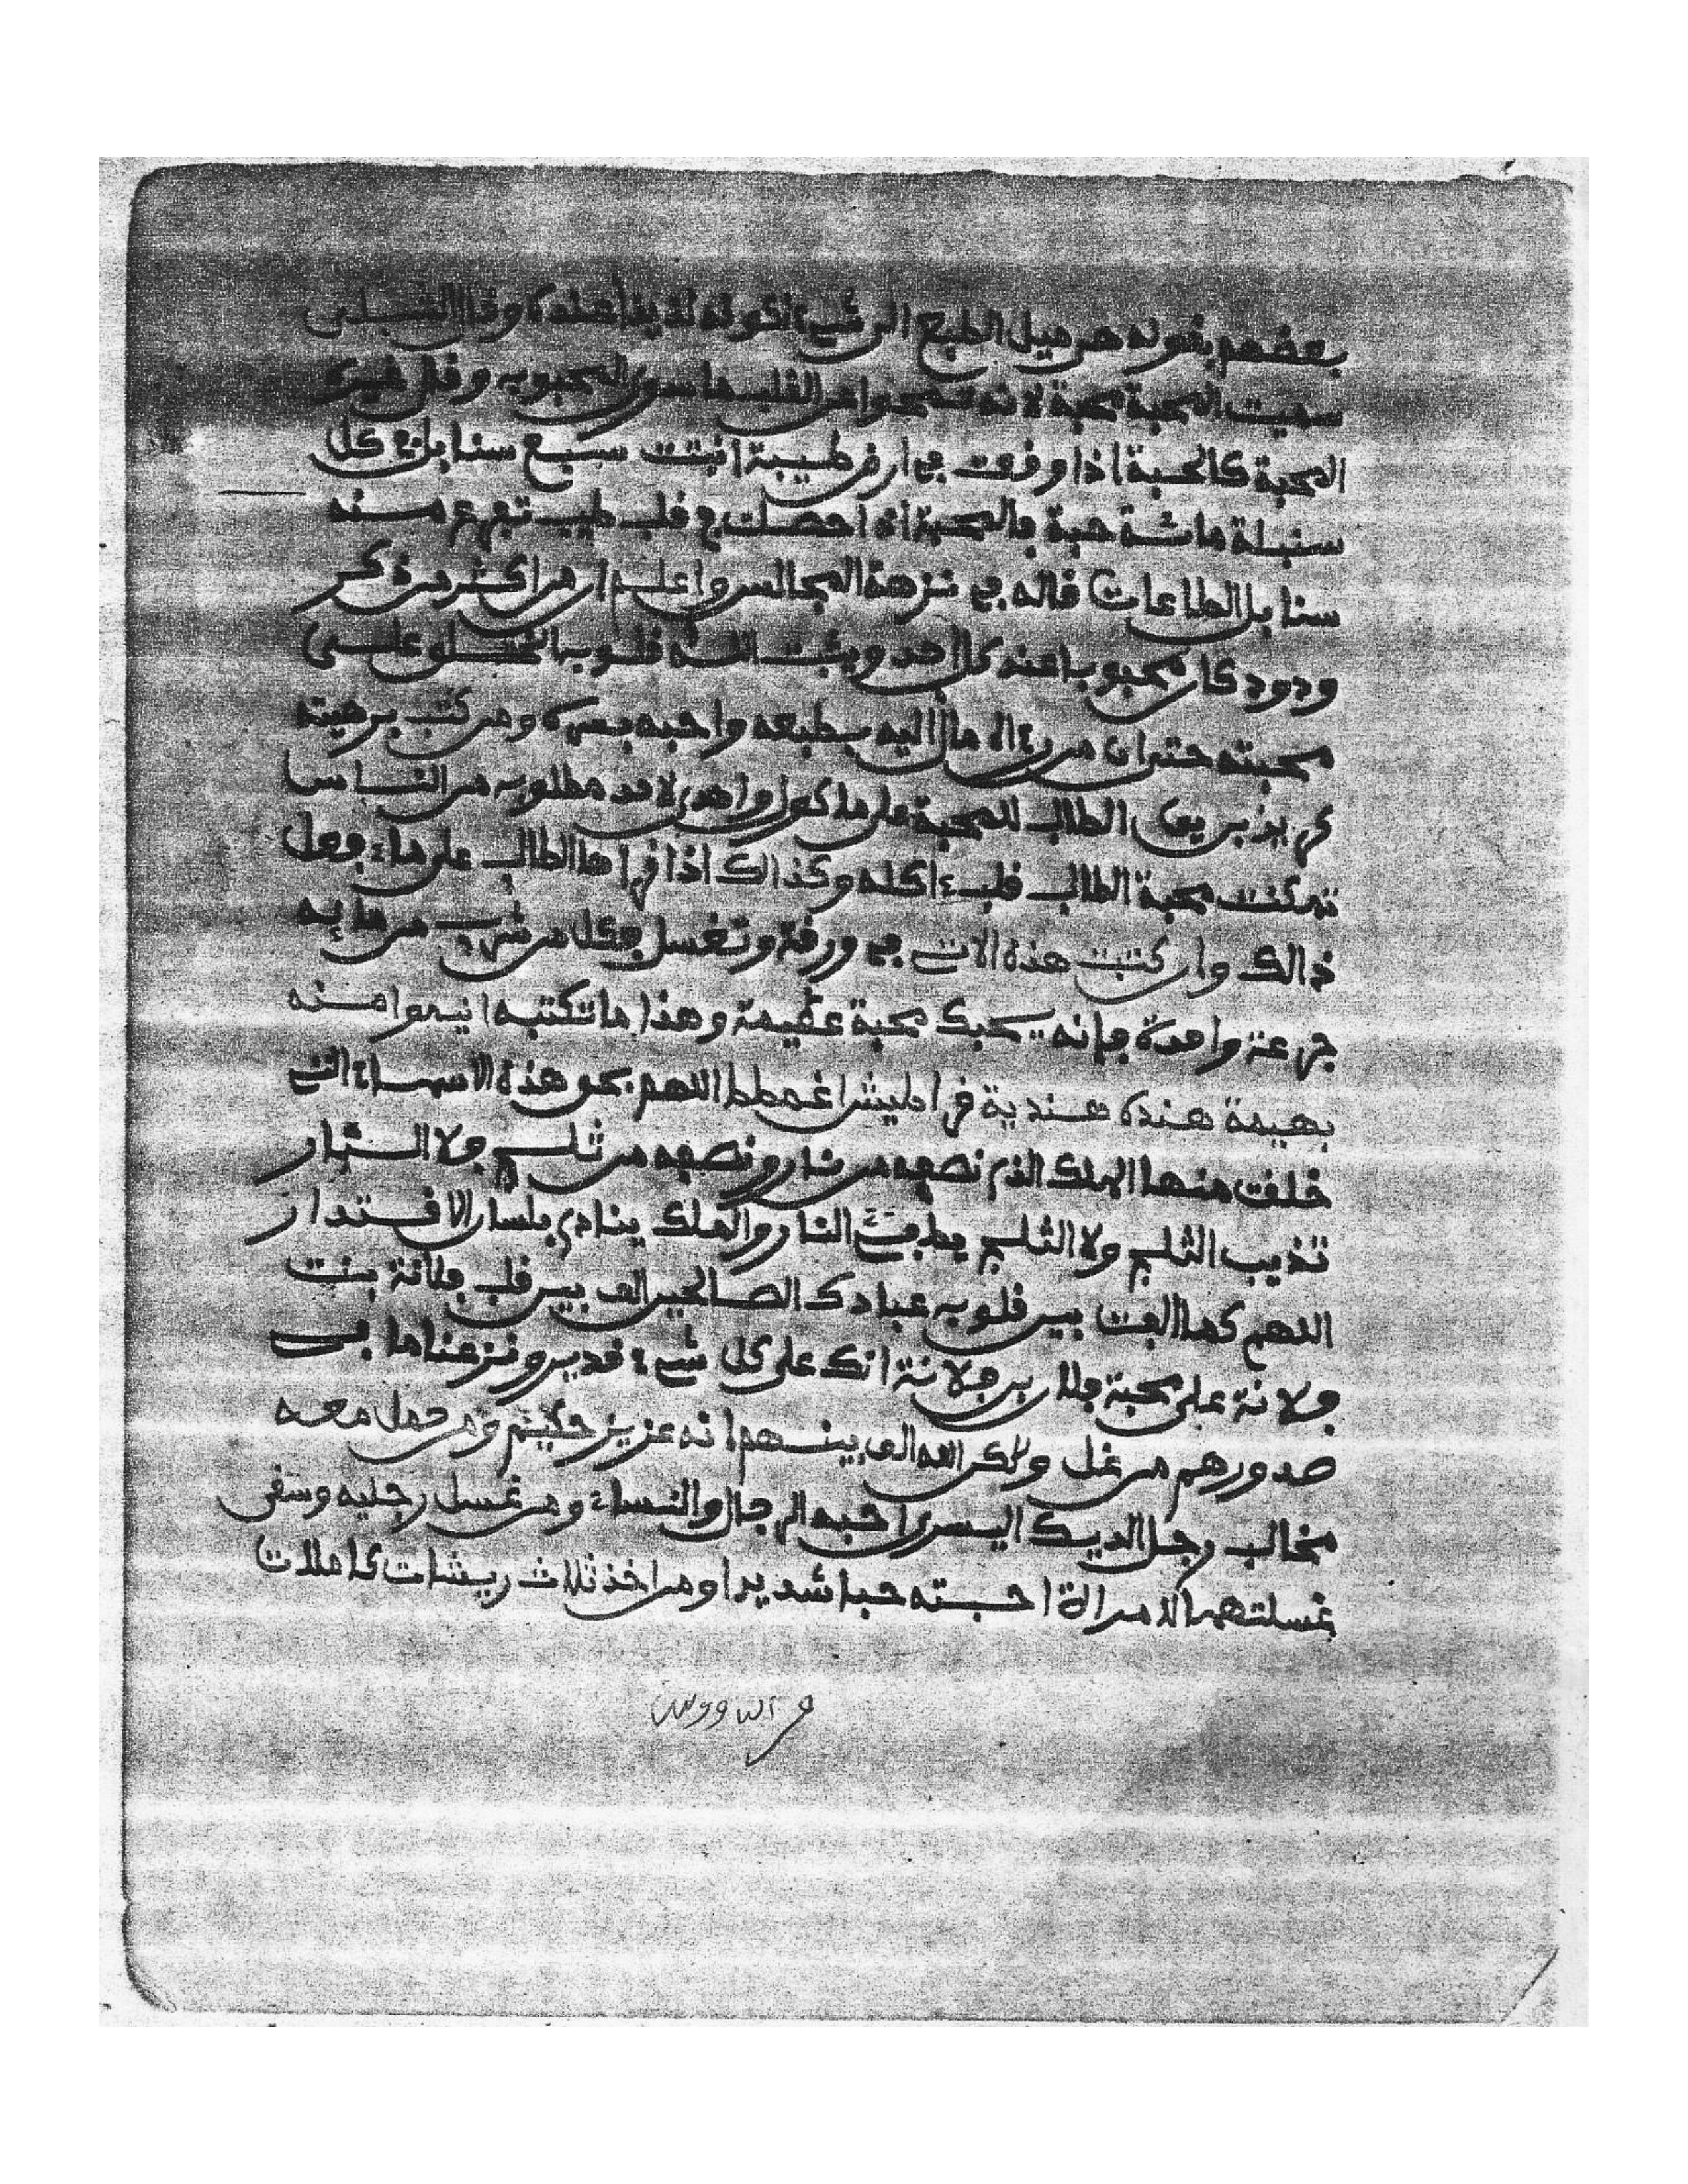 بعضهم بقوله هي ميل الطبع الى شيء لكونه لذيذا عنده وقال الشبلي
سميت المحبة محبة لانها تمحوا من القلب ما سوى المحبوب وقال غيره
المحبة كالحبة اذا وقعت في ارض طيبة انبتت سبع سنابل في كل
سنبلة مائة حبة والمحبة اذا حصلت في قلب طيب تفرع منه
سنابل الطاعات قاله في نزهة المجالس واعلم ان من اكثر من ذكر
ودود كان محبوبا عند كل احد ويثبت الله قلوب الخلق على
محبته حتى ان من رءاه مال اليه بطبعه واحبه بسره ومن كتب برهيته
كرير الطالب للمحبة على ماكول واهدى لاحد مطلوبه من الناس
تمكنت محبة الطالب قلب ءاكله وكذالك اذا قراها الطالب على ماء وفعل
ذالك وان كتبت هذه الات في ورقة وتغسل فكل من شرب من مايه
جرعة واحدة فانه يحبك محبة عظيمة وهذا ما تكتبه انيموا منه
بهيمة هنده هندية قراطيشا غمطط اللهم بحق هذه الاسماء التي
خلقت منها الملك الذي نصفه من نار ونصفه من ثلج فلا النار
تذيب الثلج ولا الثلج يطفئ النار والملك ينادي بلسان الاقتدار
اللهم كما الفت بين قلوب عبادك الصالحين الف بين قلب فلانة بنت
فلانة على محبة فلان بن فلانة انك على كل شيء قدير ونزعنا ما في
صدورهم من غل ولكن الله الف بينهم انه عزيز حكيم ومن حمل معه
مخالب رجل الديك اليسرى احبه الرجال والنساء ومن غسل رجليه وسقى
غسلتهما لامراة احبته حبا شديدا ومن اخذ ثلاث ريشات كاملات